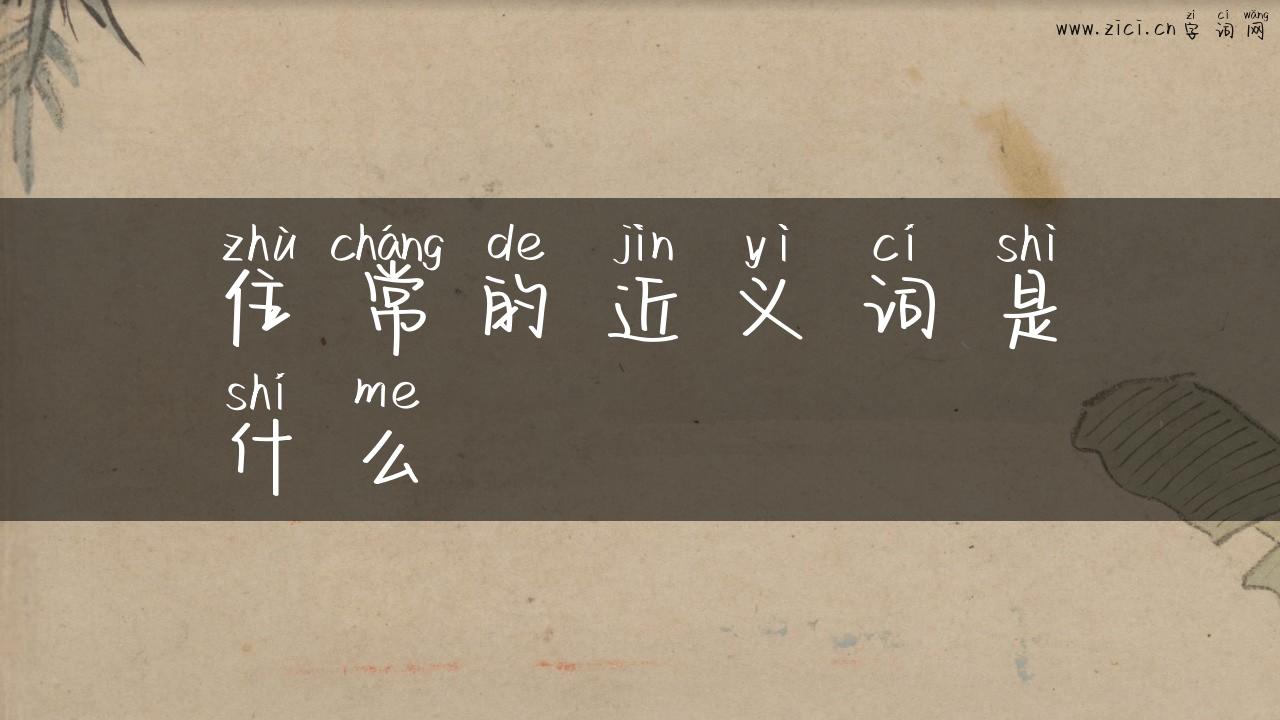 zì cí wǎng
www.zici.cn 字词网
zhù cháng de jìn yì cí shì
住常的近义词是
shí me
什么